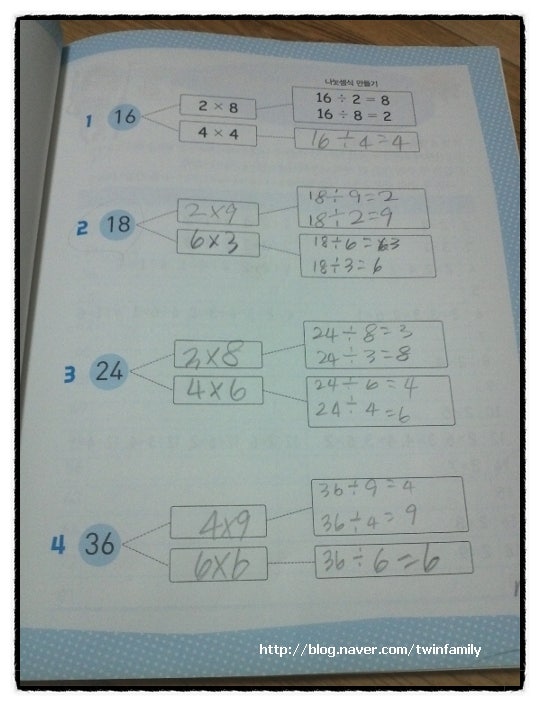 나눗셈식 만들기
1 16
2 × 8
16 ÷ 2 = 8
16 ÷ 8 = 2
4 × 4
16 ÷ 4 = 4
2 18
2×9
18÷9=2
18÷2=9
6×3
18÷6=3
18÷3=6
3 24
3×8
24÷8=3
24÷3=8
4×6
24÷6=4
24÷4=6
4 36
4×9
36÷9=4
36÷4=9
6×6
36÷6=6
http://blog.naver.com/twinfamily